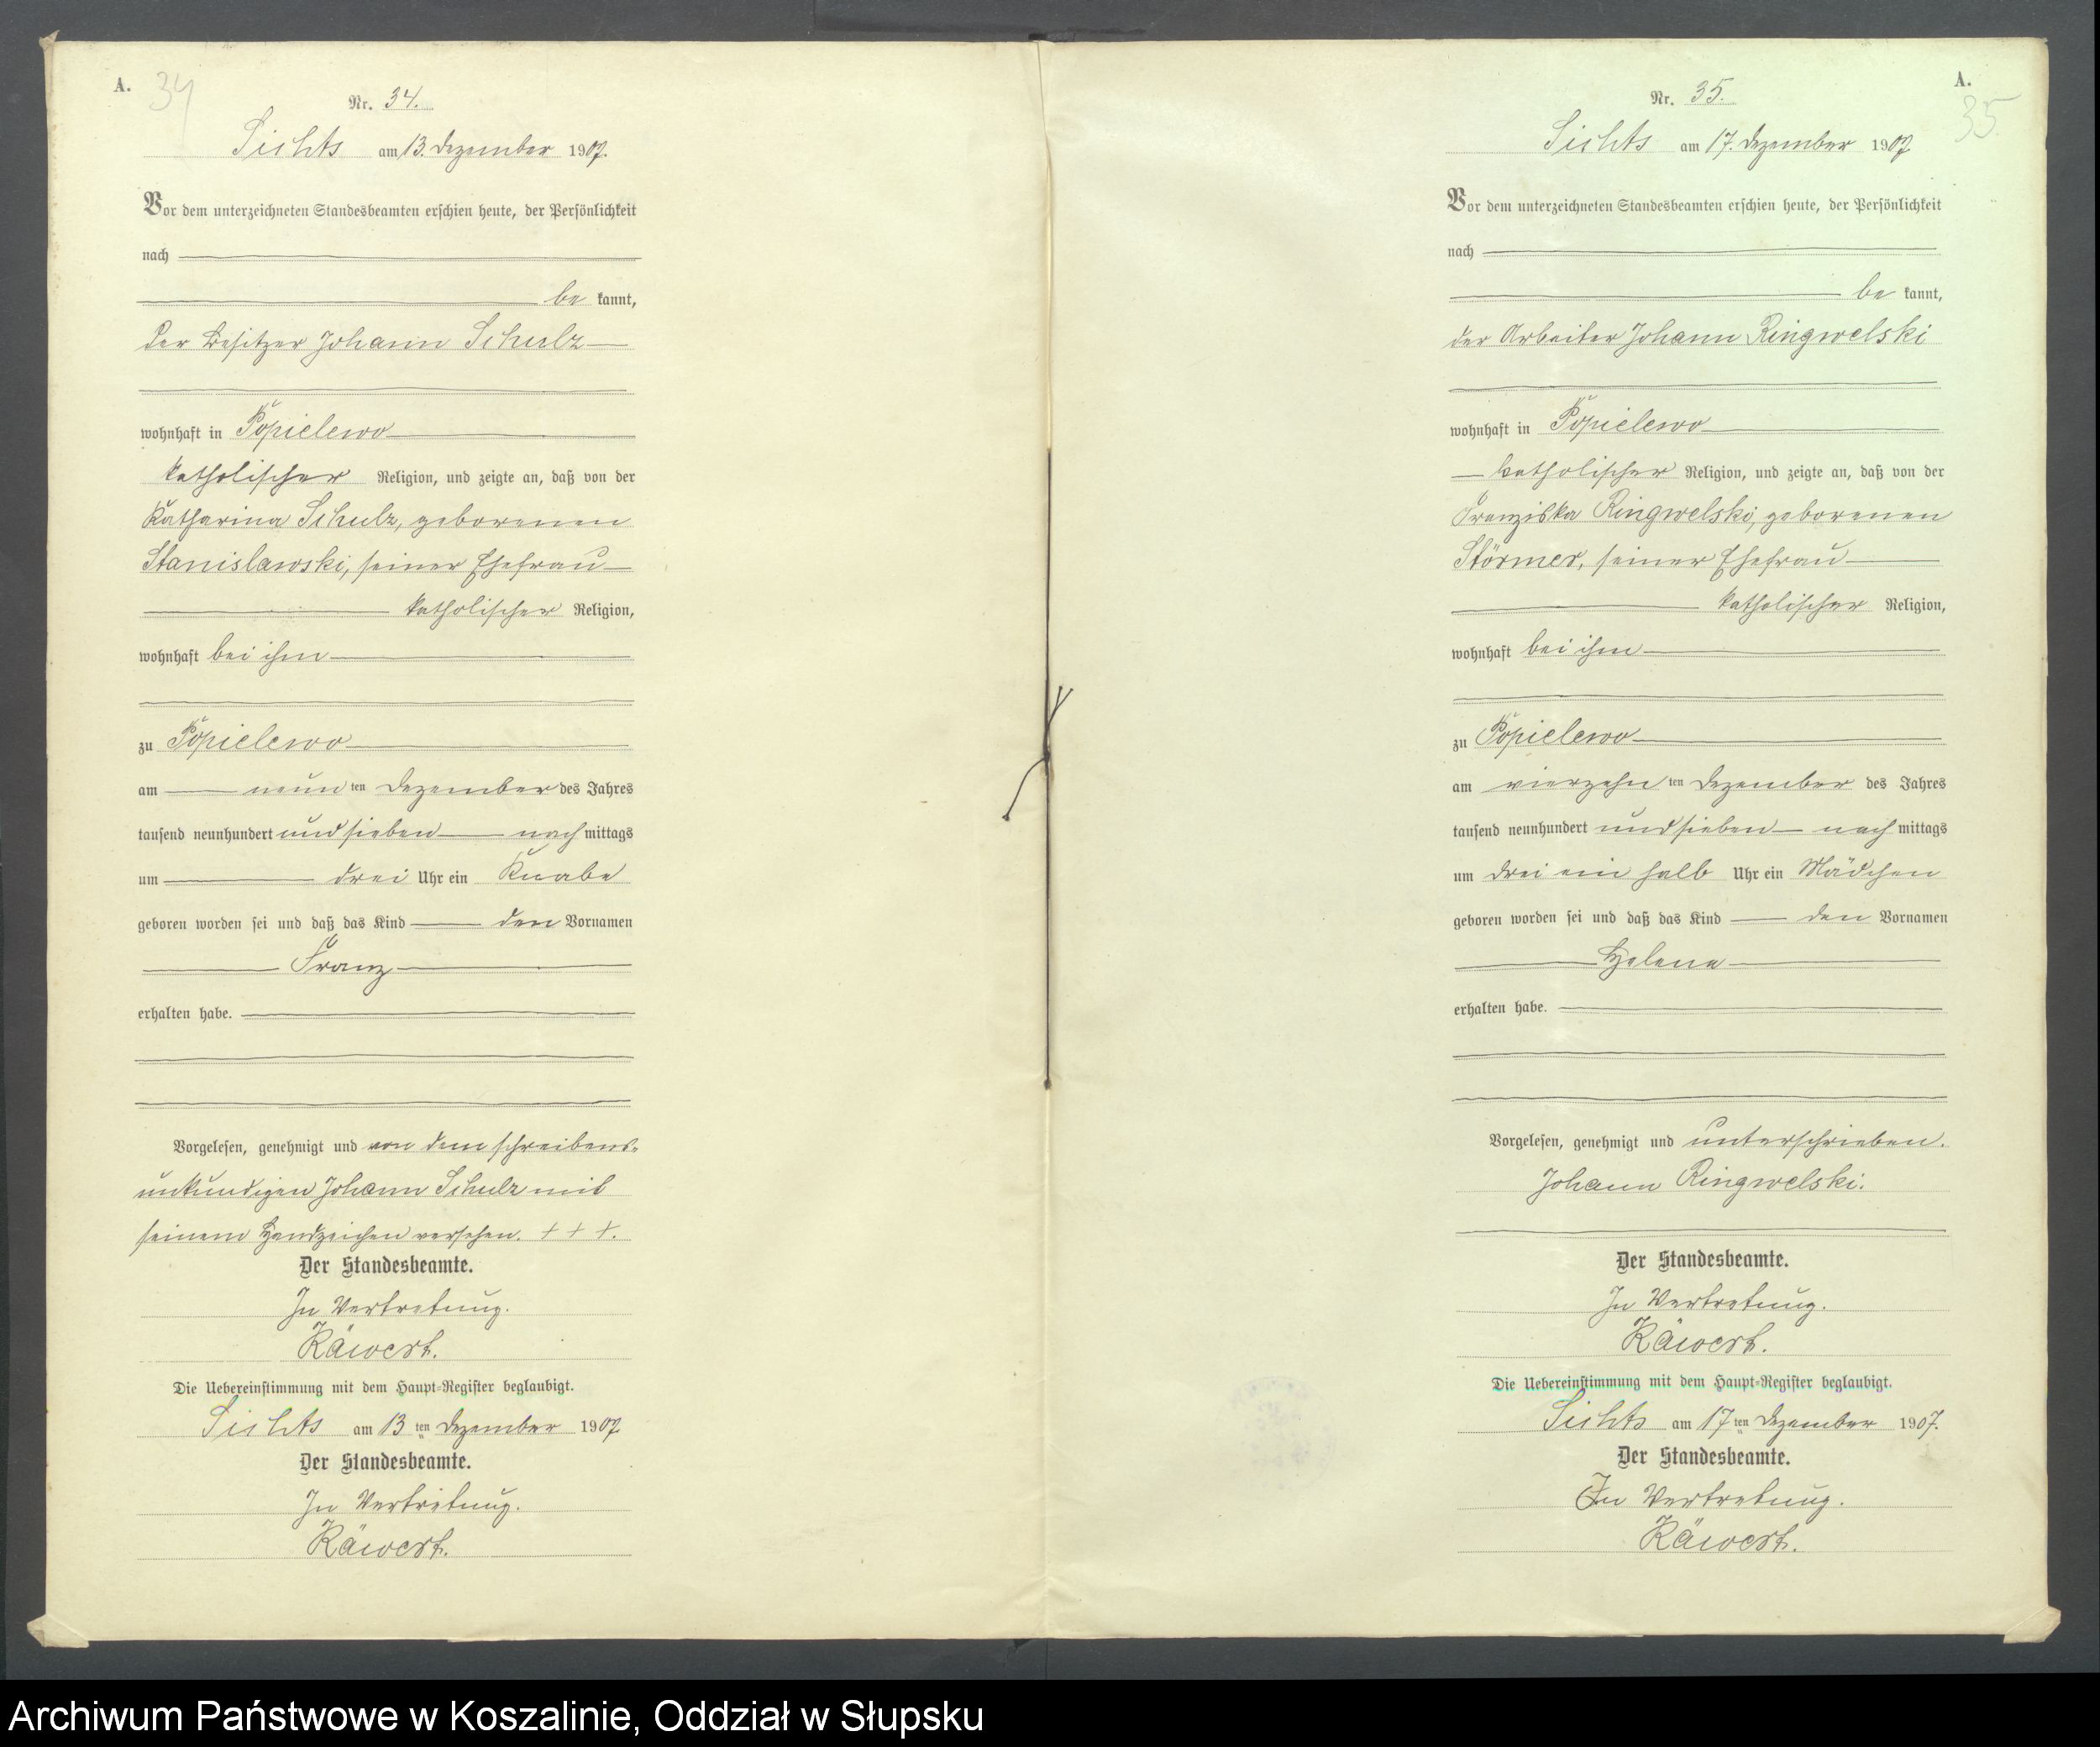 A.
34
Nr. 34.
Sichts am 13. Dezember 1907.
Vor dem unterzeichneten Standesbeamten erschien heute, der Persönlichkeit
nach
be kannt,
der Besitzer Johann Schulz
wohnhaft in Popielewo
katholischer Religion, und zeigte an, daß von der
Katharina Schulz, geborenen
Stanislawski, seiner Ehefrau
katholischer Religion,
wohnhaft bei ihm
zu Popielewo
am neun ten Dezember des Jahres
tausend neunhundert und sieben nach mittags
um drei Uhr ein Knabe
geboren worden sei und daß das Kind den Vornamen
Franz
erhalten habe.
Vorgelesen, genehmigt und von dem schreibens-
unkundigen Johann Schulz mit
seinem Handzeichen versehen. + + +.
Der Standesbeamte.
In Vertretung.
Käwert.
Die Uebereinstimmung mit dem Haupt-Register beglaubigt.
Sichts am 13 ten Dezember 1907
Der Standesbeamte.
In Vertretung.
Käwert.
A.
35
Nr. 35.
Sichts am 17. Dezember 1907
Vor dem unterzeichneten Standesbeamten erschien heute, der Persönlichkeit
nach
be kannt,
der Arbeiter Johann Ringwelski
wohnhaft in Popielewo
katholischer Religion, und zeigte an, daß von der
Franziska Ringwelski, geborenen
Störmer, seiner Ehefrau
katholischer Religion,
wohnhaft bei ihm
zu Popielewo
am vierzehn ten Dezember des Jahres
tausend neunhundert und sieben nach mittags
um drei ein halb Uhr ein Mädchen
geboren worden sei und daß das Kind den Vornamen
Helene
erhalten habe.
Vorgelesen, genehmigt und unterschrieben.
Johann Ringwelski.
Der Standesbeamte.
In Vertretung.
Käwert.
Die Uebereinstimmung mit dem Haupt-Register beglaubigt.
Sichts am 17 ten Dezember 1907.
Der Standesbeamte.
In Vertretung.
Käwert.
Archiwum Państwowe w Koszalinie, Oddział w Słupsku